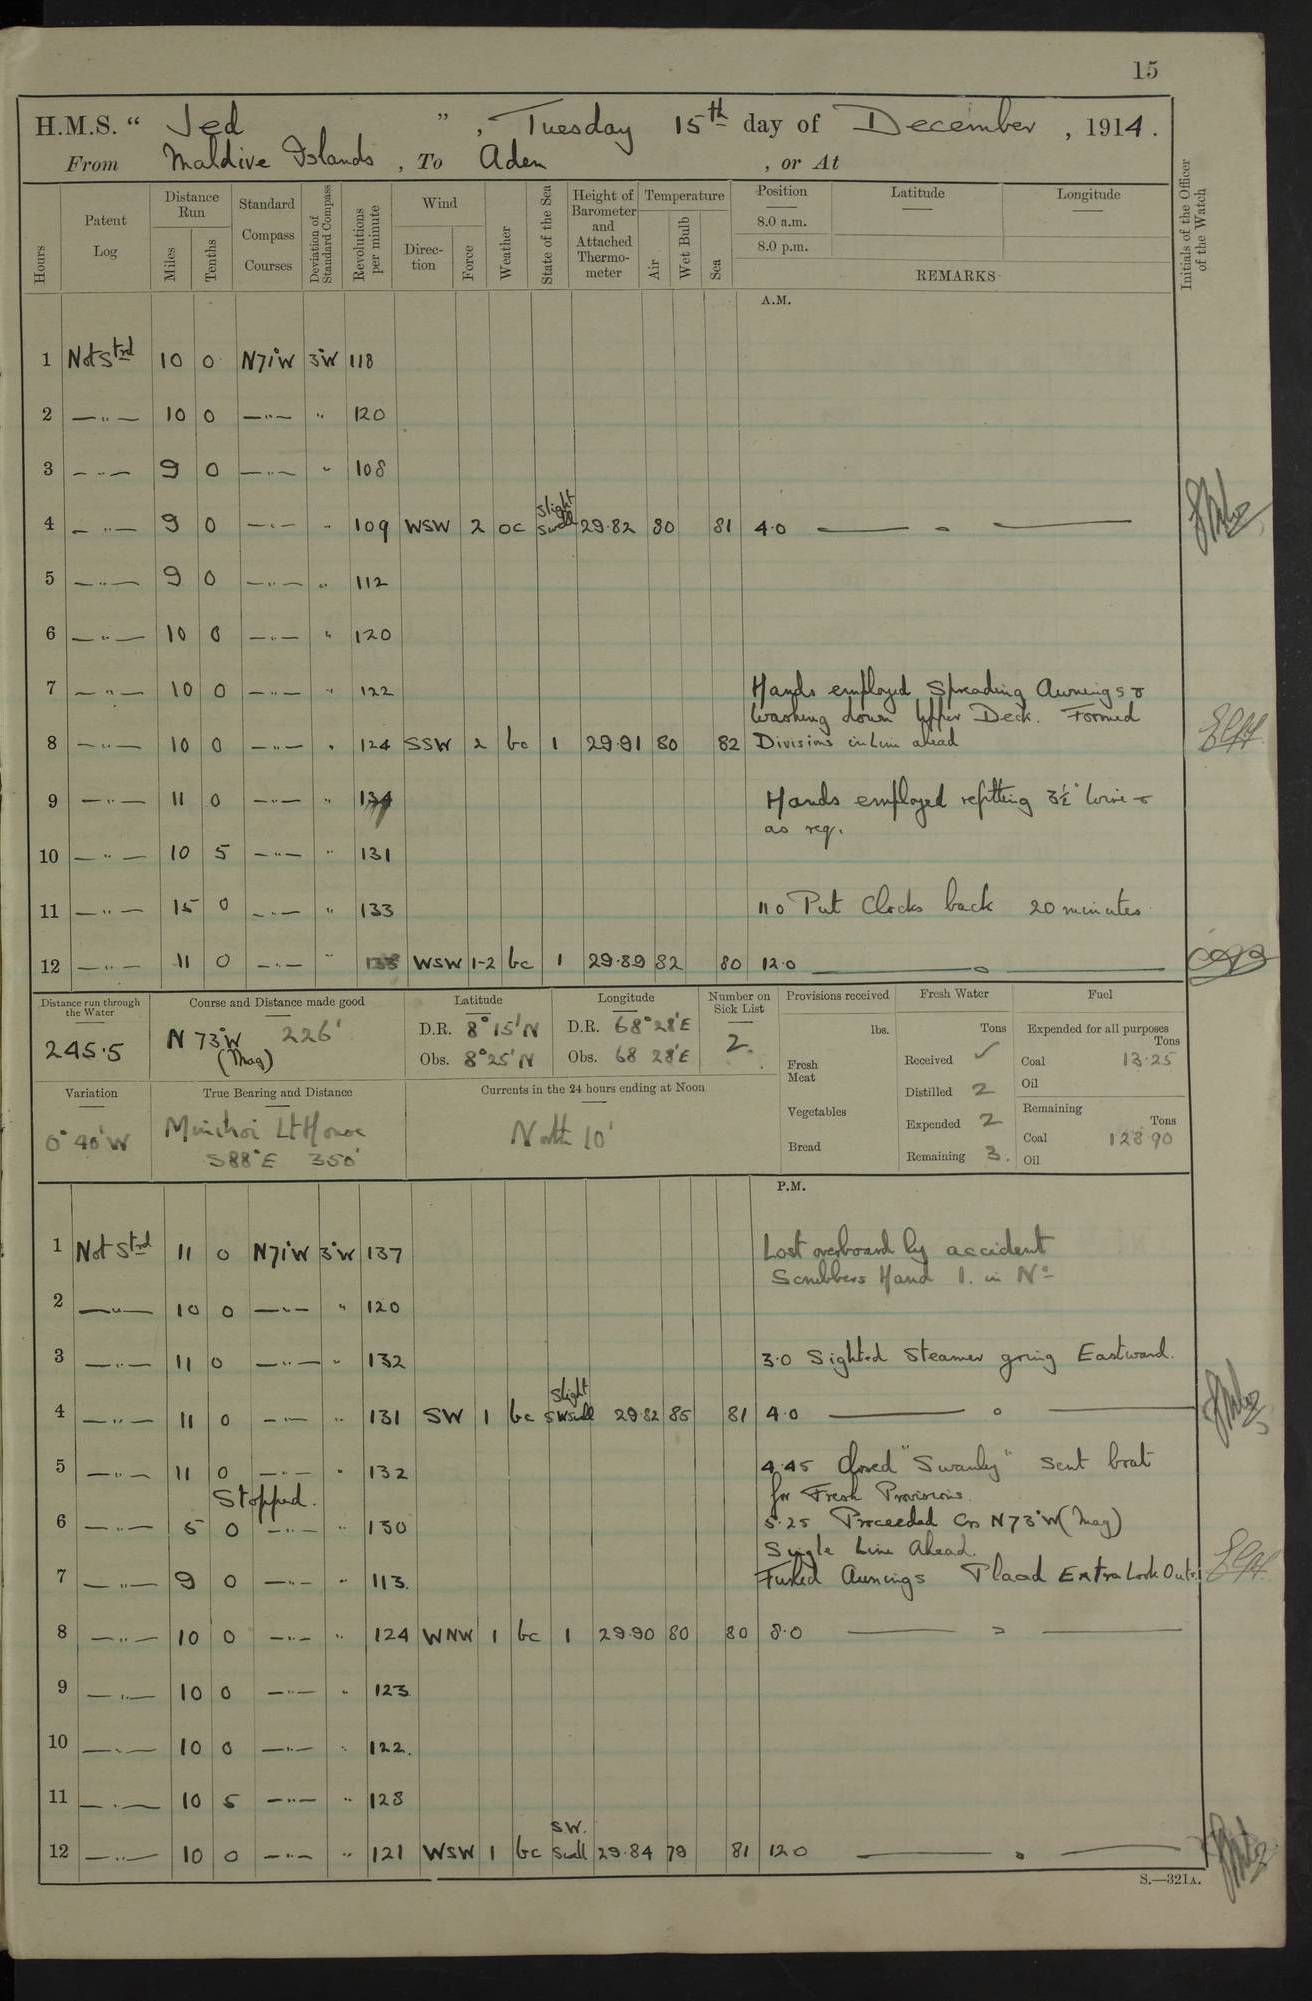 15
H.M.S. “ Jed ” , Tuesday 15th day of December , 1914.
From Maldive Islands , To Aden , or At
Hours
Patent Log
Distance Run
Miles
Tenths
Standard Compass Courses
Deviation of Standard Compass
Revolutions per minute
Wind
Direction
Force
Weather
State of the Sea
Height of Barometer and Attached Thermometer
Temperature
Air
Wet Bulb
Sea
Position
8.0 a.m.
8.0 p.m.
Latitude
Longitude
REMARKS
Initials of the Officer of the Watch
A.M.
1 Not Strd 10 0 N71°W 3°W 118
2 —"— 10 0 —"— " 120
3 —"— 9 0 —"— " 108
4 —"— 9 0 —"— " 109 WSW 2 oc Slight swell 29.82 80 81 4.0 —— " ——
5 —"— 9 0 —"— " 112
6 —"— 10 0 —"— " 120
7 —"— 10 0 —"— " 122 Hands employed Spreading Awnings &
washing down Upper Deck. Formed
8 —"— 10 0 —"— " 124 SSW 2 bc 1 29.91 80 82 Divisions in Line ahead
9 —"— 11 0 —"— " 134 Hands employed refitting 3½" wire &
as req.
10 —"— 10 5 —"— " 131
11 —"— 15 0 —"— " 133 11 0 Put Clocks back 20 minutes
12 —"— 11 0 —"— " WSW 1-2 bc 1 29.89 82 80 12.0 —— o ——
Distance run through the Water
245.5
Course and Distance made good
N 73°W 226'
(Mag)
Latitude
D.R. 8° 15'N
Obs. 8° 25'N
Longitude
D.R. 68° 28'E
Obs. 68 28'E
Number on Sick List
2.
Provisions received
lbs.
Fresh Meat
Vegetables
Bread
Fresh Water
Tons
Received ✓
Distilled 2
Expended 2
Remaining 3.
Fuel
Expended for all purposes
Tons
Coal 13.25
Oil
Remaining
Tons
Coal 128.90
Oil
Variation
0° 40'W
True Bearing and Distance
Minikoi Lt House
S88°E 350'
Currents in the 24 hours ending at Noon
North 10'
P.M.
1 Not Strd 11 0 N71°W 3°W 137 Lost overboard by accident
Scrubbers Hand 1. in No
2 —"— 10 0 —"— " 120
3 —"— 11 0 —"— " 132 3.0 Sighted Steamer going Eastward.
4 —"— 11 0 —"— " 131 SW 1 bc Slight SW swell 29.82 85 81 4.0 —— o ——
5 —"— 11 0 —"— " 132 4.45 Closed "Swanley" Sent boat
Stopped. for Fresh Provisions.
6 —"— 5 0 —"— " 130 5.25 Proceeded Co N73°W (Mag)
Single Line Ahead.
7 —"— 9 0 —"— " 113. Furled Awnings Placed Extra Look Outs.
8 —"— 10 0 —"— " 124 WNW 1 bc 1 29.90 80 80 8.0 —— " ——
9 —"— 10 0 —"— " 123
10 —"— 10 0 —"— " 122.
11 —"— 10 5 —"— " 128
12 —"— 10 0 —"— " 121 WSW 1 bc SW. Swell 29.84 79 81 12 0 —— o ——
S.—321A.